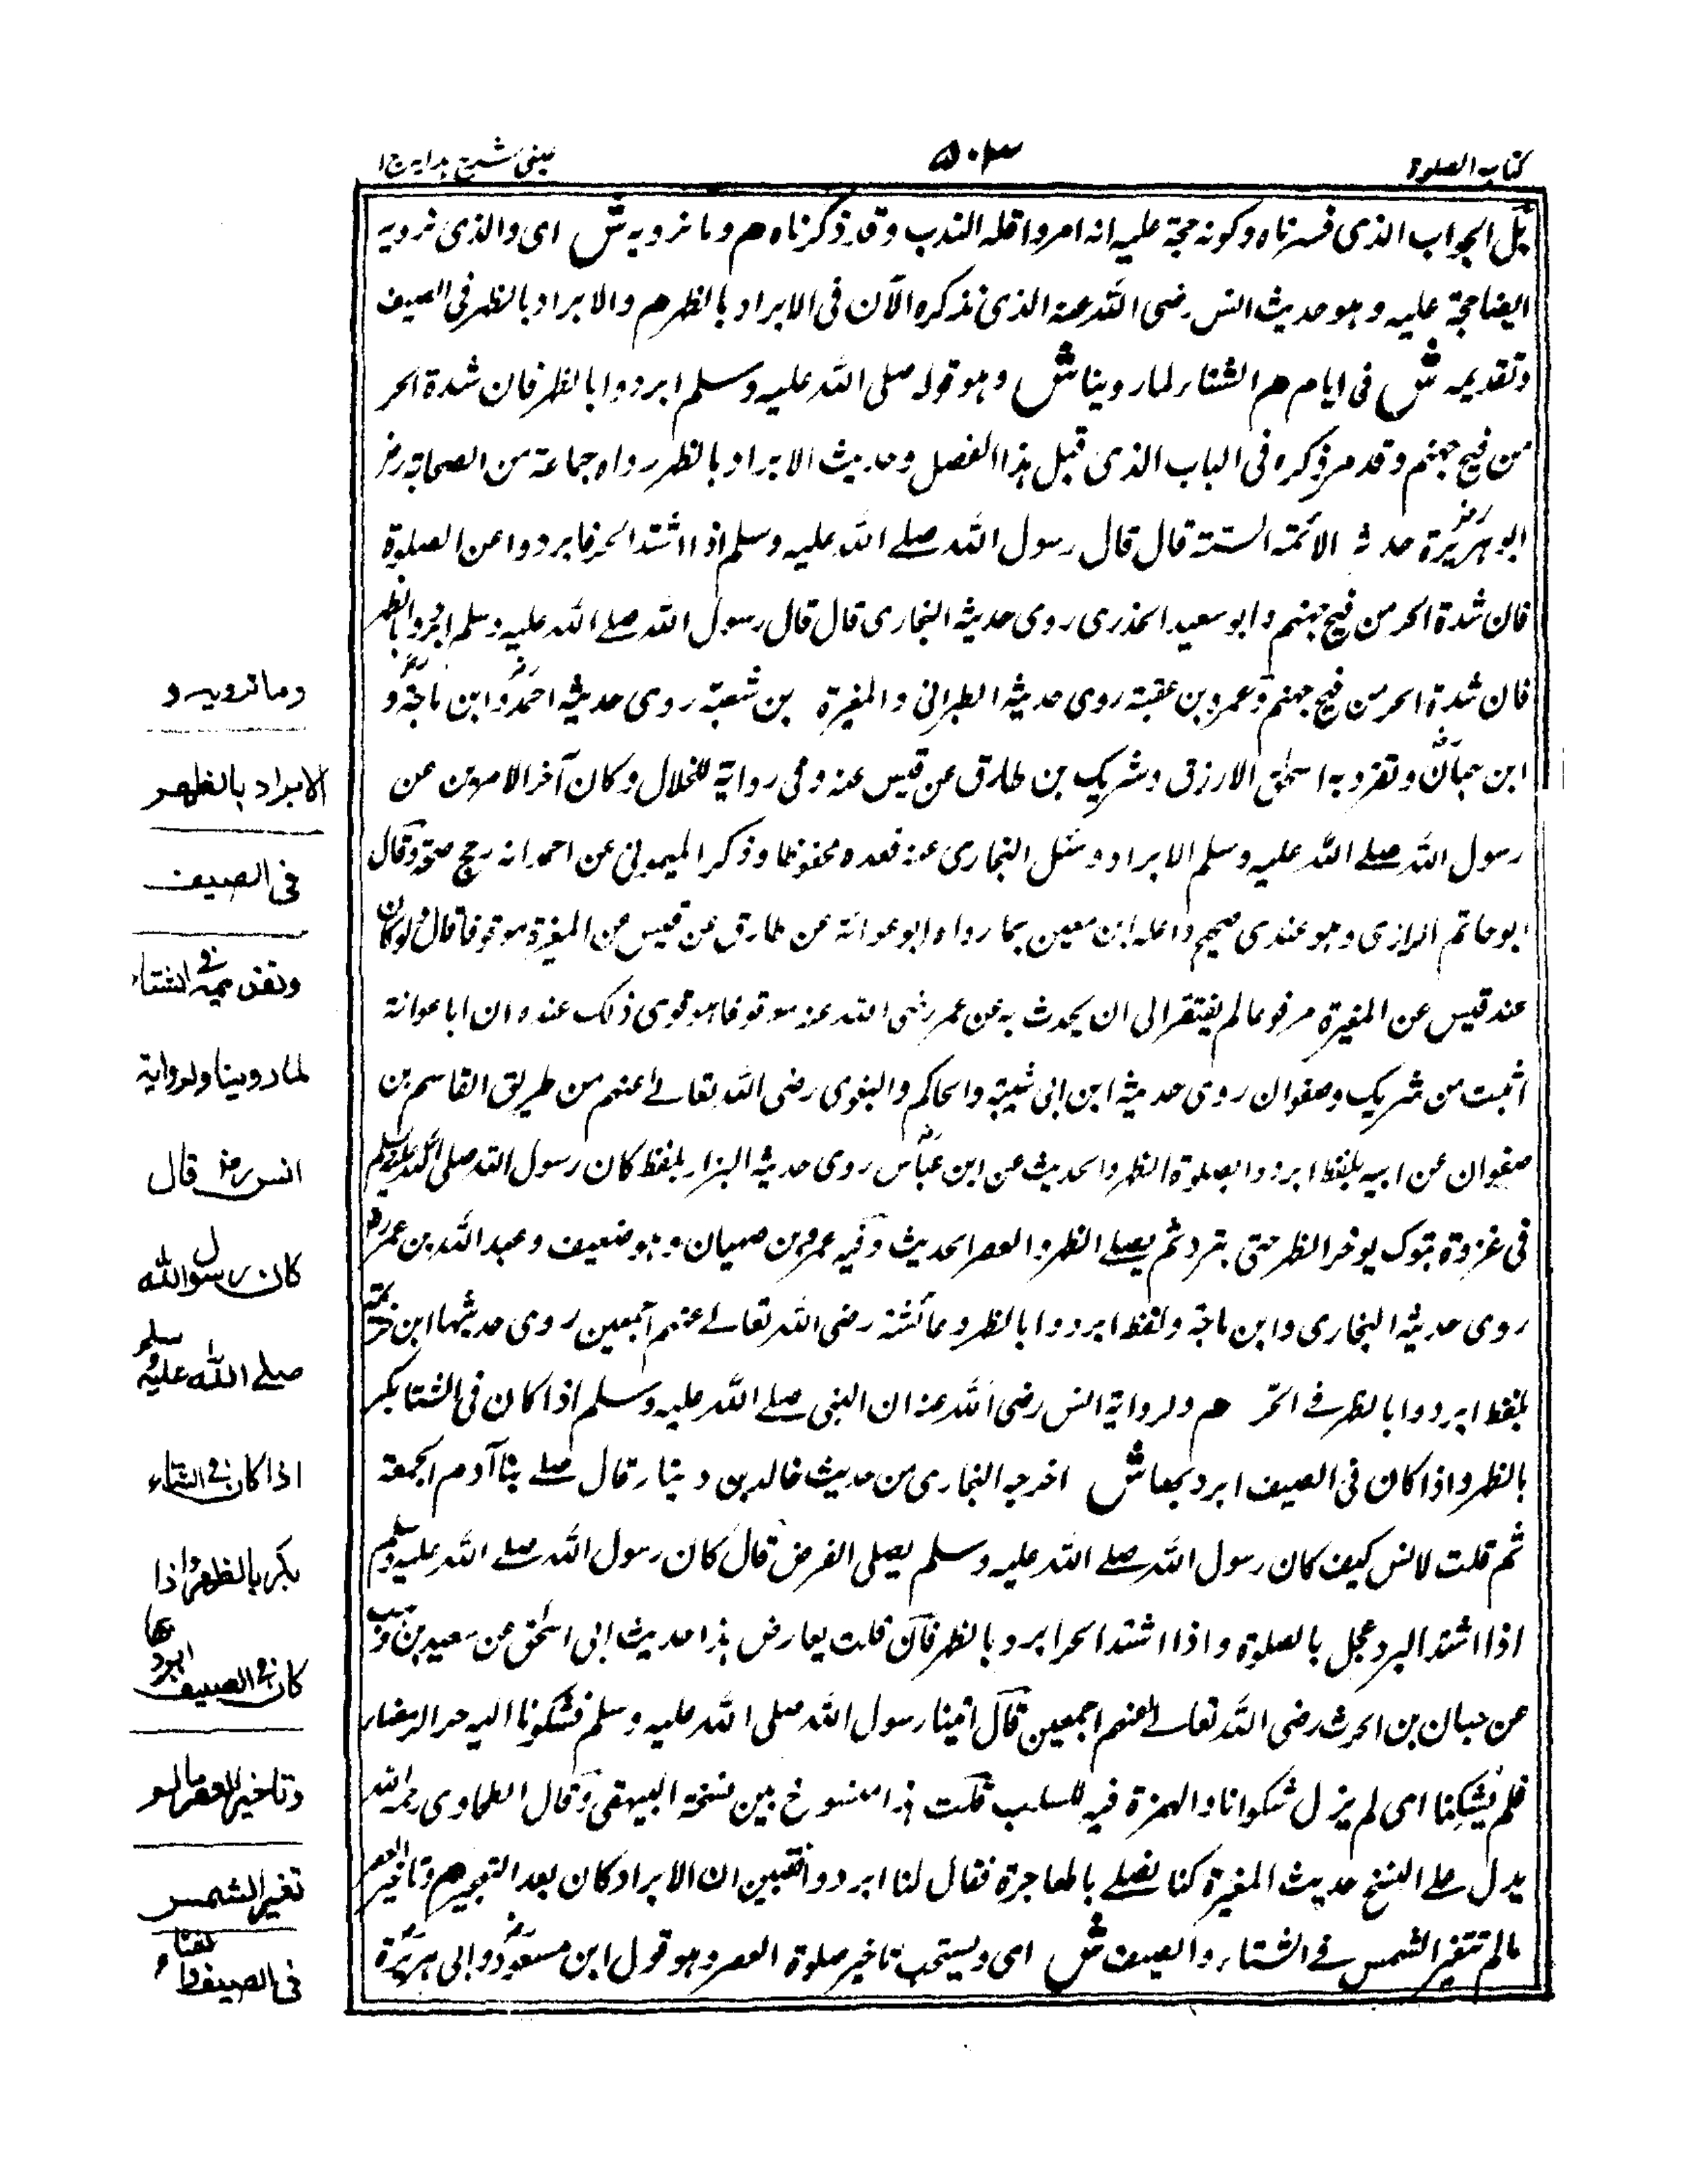 كتاب الصلوة
۵۰۳
عينى شرح هدايه ج۱
بل الجواب الذى فسرناه وكونه حجة عليه انه امر واقله الندب وقد ذكرناه هم وما نرويه ش اى والذى نرويه
ايضا حجة عليه وهو حديث انس رضى الله عنه الذى نذكره الآن فى الابراد بالظهر هم والابراد بالظهر فى الصيف
وتقديمه ش فى ايام هم الشتاء لما روينا ش وهو قوله صلى الله عليه وسلم ابردوا بالظهر فان شدة الحر
من فيح جهنم وقد مر ذكره فى الباب الذى قبل هذا الفصل وحديث الابراد بالظهر رواه جماعة من الصحابة رض
ابو هريرة رض حديثه الائمة الستة قال قال رسول الله صلے الله عليه وسلم اذا اشتد الحر فابردوا عن الصلوة
فان شدة الحر من فيح جهنم وابو سعيد الخذرى روى حديثه البخارى قال قال رسول الله صلے الله عليه وسلم ابردوا بالظهر
فان شدة الحر من فيح جهنم وعمرو بن عقبة روى حديثه الطبرانى والمغيرة بن شعبة روى حديثه احمد وابن ماجة و
ابن حبان وتفرد به اسحٰق الارزق وشريك بن طارق عن قيس عنه وفى رواية للخلال وكان آخر الامرين عن
رسول الله صلے الله عليه وسلم الابراد وسئل البخارى عنه فعده محفوظا وذكر الميمونى عن احمد انه رجح صحته وقال
ابو حاتم الرازى وهو عندى صحيح واعله ابن معين بما رواه ابو عوانة عن طارق عن قيس عن المغيرة موقوفا قال لو كان
عند قيس عن المغيرة مرفوعا لم يفتقر الى ان يحدث به عن عمر رضى الله عنه موقوفا هو قوى ذلك عنده ان ابا عوانة
اثبت من شريك وصفوان روى حديثه ابن ابى شيبة والحاكم والبغوى رضى الله تعالےٰ عنهم من طريق القاسم بن
صفوان عن ابيه بلفظ ابردوا بصلوة الظهر والحديث عن ابن عباس روى حديثه البزار بلفظ كان رسول الله صلى الله عليه وسلم
فى غزوة تبوك يوخر الظهر حتى يبرد ثم يصلے الظهر والعصر الحديث وفيه عمرو بن صهبان وهو ضعيف وعبد الله بن عمر رض
روى حديثه البخارى وابن ماجة ولفظ ابردوا بالظهر وعائشة رضى الله تعالےٰ عنهم اجمعين روى حديثها ابن خزيمة
بلفظ ابردوا بالظهر فے الحر هم ولرواية انس رضى الله عنه ان النبى صلے الله عليه وسلم اذا كان فى الشتا بكر
بالظهر واذا كان فى الصيف ابرد بها ش اخرجه البخارى من حديث خالد بن دينار قال صلے بنا آدم الجمعة
ثم قلت لانس كيف كان رسول الله صلے الله عليه وسلم يصلى الفرض قال كان رسول الله صلے الله عليه وسلم
اذا اشتد البرد عجل بالصلوة واذا اشتد الحر ابرد بالظهر فان قلت يعارض هذا حديث ابى اسحٰق عن سعيد بن وهب
عن حبان بن الحرث رضى الله تعالےٰ عنهم اجمعين قال اتينا رسول الله صلى الله عليه وسلم فشكونا اليه حر الرمضاء
فلم يشكنا اى لم يزل شكوانا والهمزة فيه للسلب قلت هذا منسوخ بين نسخه البيهقى وقال الطحاوى رحمه الله
يدل على النسخ حديث المغيرة كنا نصلے بالهاجرة فقال لنا ابردوا فتبين ان الابراد كان بعد التهجير هم وتاخير العصر
مالم تتغير الشمس فے الشتاء والصيف ش اى ويستحب تاخير صلوة العصر وهو قول ابن مسعود وابى هريرة
وما نرويه و
الابراد بالظهر
فى الصيف
وتقديمه فى الشتاء
لما روينا ولرواية
انس رض قال
كان رسول الله
صلے الله عليه وسلم
اذا كان فى الشتاء
بكر بالظهر واذا
كان فى الصيف ابرد بها
وتاخير العصر مالم
تتغير الشمس
فى الصيف والشتاء